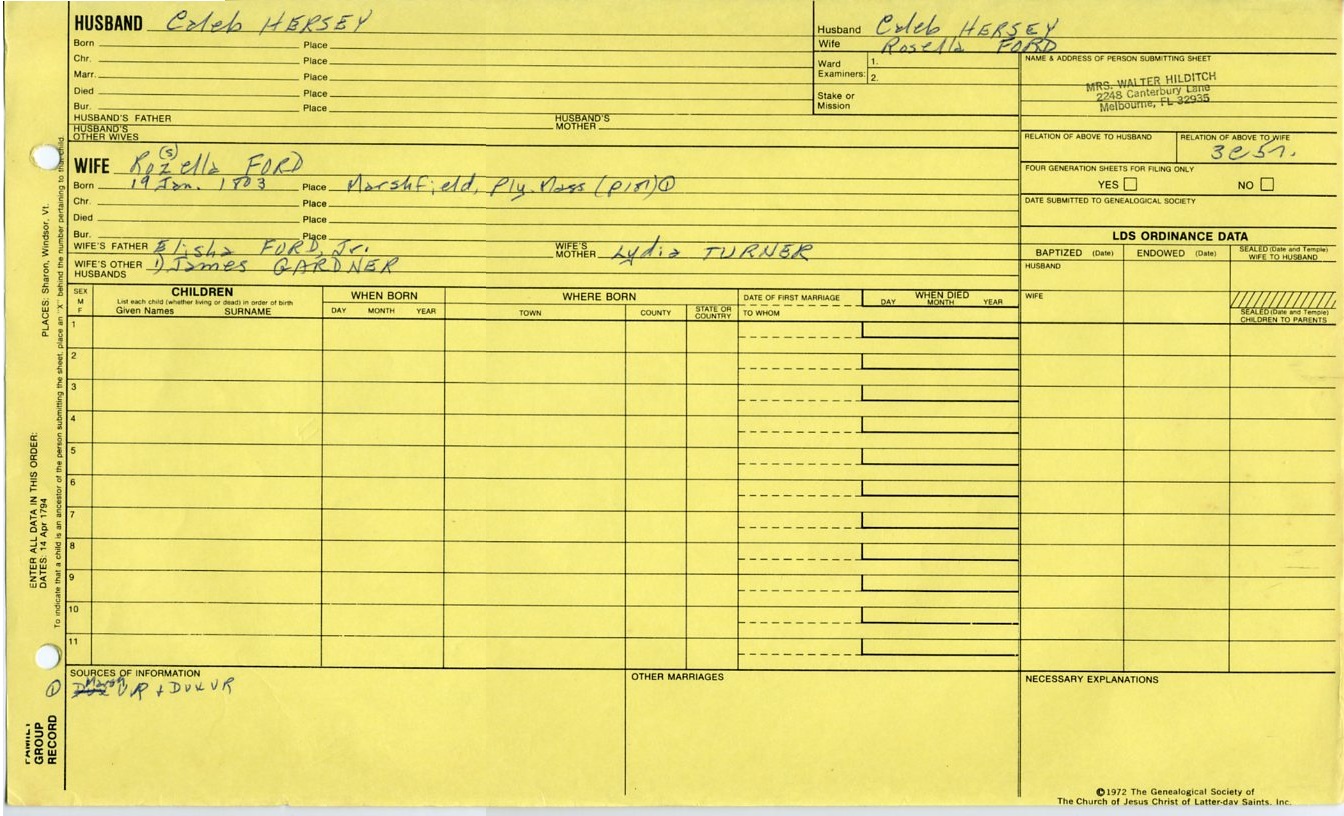 HUSBAND Caleb HERSEY
Born Place
Chr. Place
Marr. Place
Died Place
Bur. Place
HUSBAND'S FATHER HUSBAND'S MOTHER
HUSBAND'S OTHER WIVES
Husband Caleb HERSEY
Wife Rosella FORD
Ward Examiners: 1.
2.
Stake or Mission
NAME & ADDRESS OF PERSON SUBMITTING SHEET
MRS. WALTER HILDITCH
2248 Canterbury Lane
Melbourne, FL 32935
RELATION OF ABOVE TO HUSBAND RELATION OF ABOVE TO WIFE
3c5r.
FOUR GENERATION SHEETS FOR FILING ONLY
YES NO
DATE SUBMITTED TO GENEALOGICAL SOCIETY
(s)
WIFE Rozella FORD
Born 19 Jan. 1803 Place Marshfield, Ply. Mass (p151) ①
Chr. Place
Died Place
Bur. Place
WIFE'S FATHER Elisha FORD, Jr. WIFE'S MOTHER Lydia TURNER
WIFE'S OTHER HUSBANDS 1) James GARDNER
LDS ORDINANCE DATA
BAPTIZED (Date) ENDOWED (Date) SEALED (Date and Temple) WIFE TO HUSBAND
HUSBAND
WIFE
SEALED (Date and Temple) CHILDREN TO PARENTS
SEX M F
CHILDREN
List each child (whether living or dead) in order of birth
Given Names SURNAME
WHEN BORN
DAY MONTH YEAR
WHERE BORN
TOWN COUNTY STATE OR COUNTRY
DATE OF FIRST MARRIAGE
TO WHOM
WHEN DIED
DAY MONTH YEAR
1
2
3
4
5
6
7
8
9
10
11
SOURCES OF INFORMATION
① Marsh VR + Dux VR
OTHER MARRIAGES
NECESSARY EXPLANATIONS
FAMILY GROUP RECORD
ENTER ALL DATA IN THIS ORDER:
DATES: 14 Apr 1794
PLACES: Sharon, Windsor, Vt.
To indicate that a child is an ancestor of the person submitting the sheet, place an "X" behind the number pertaining to that child.
©1972 The Genealogical Society of
The Church of Jesus Christ of Latter-day Saints, Inc.